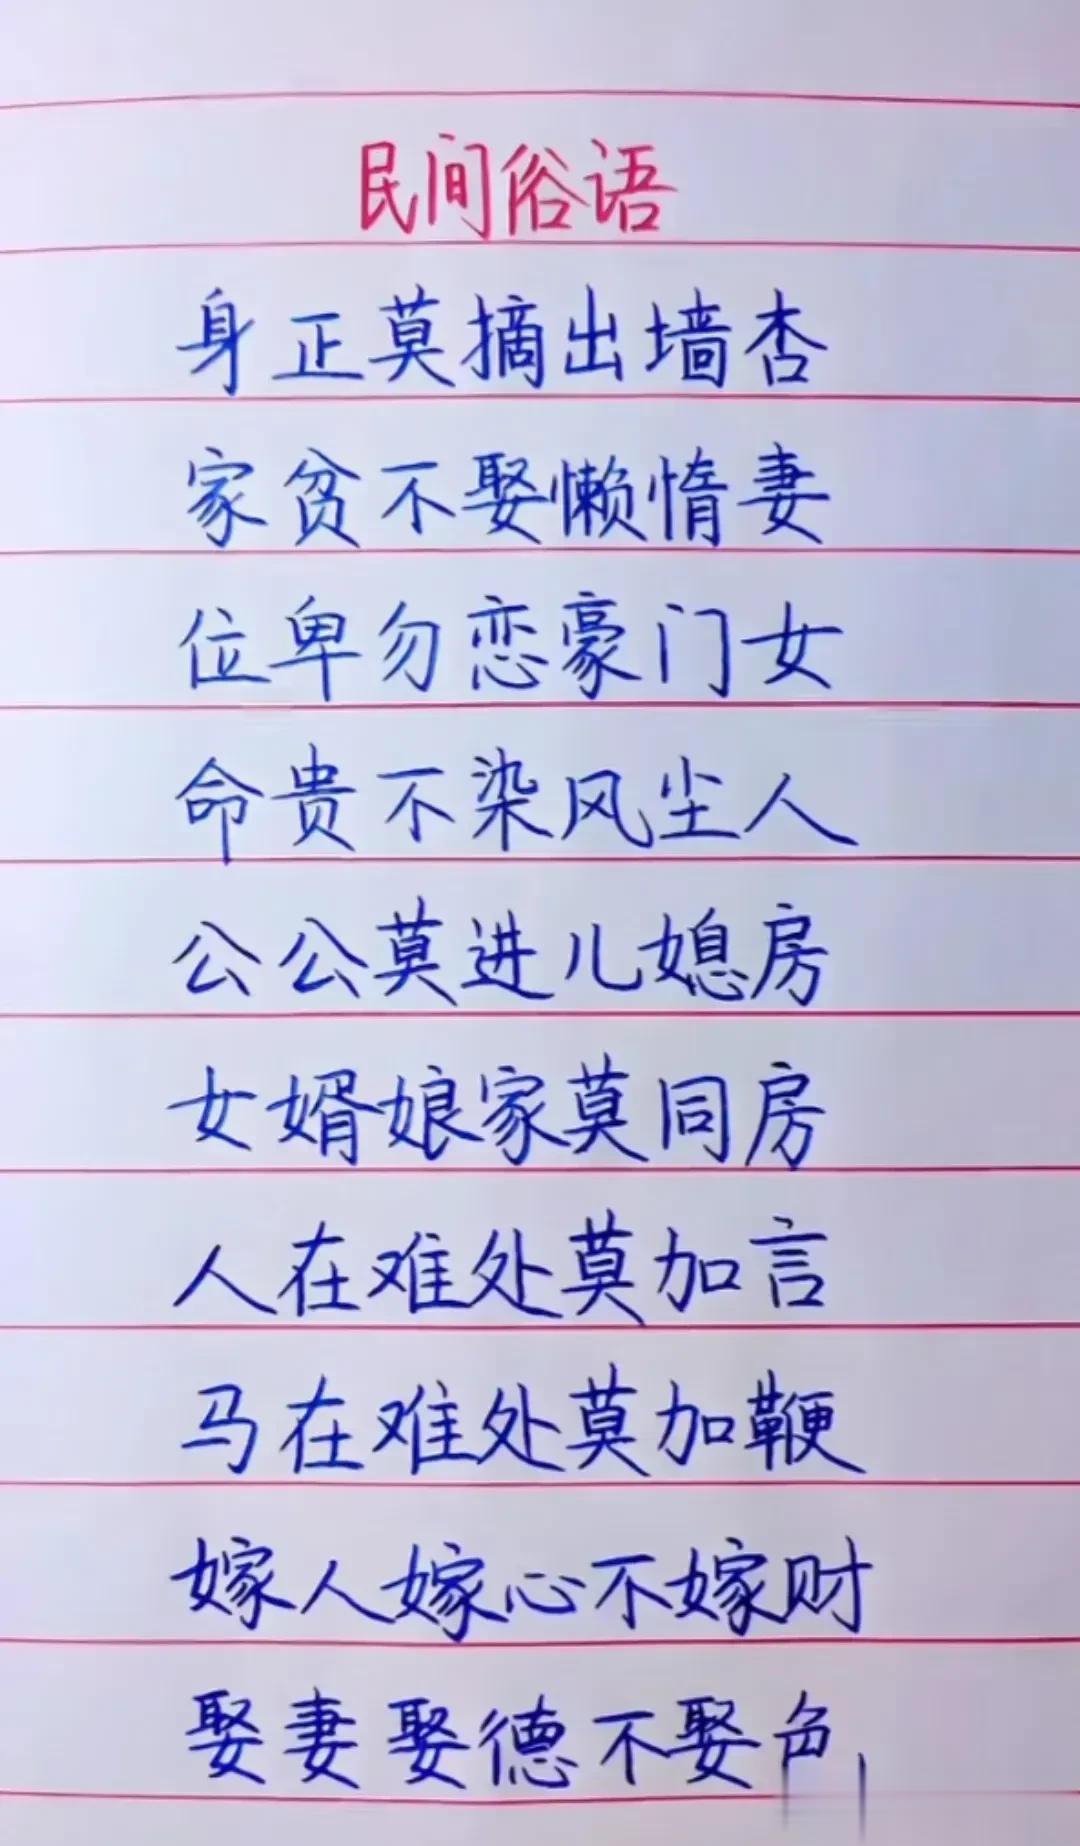 民间俗语
身正莫摘出墙杏
家贫不娶懒惰妻
位卑勿恋豪门女
命贵不染风尘人
公公莫进儿媳房
女婿娘家莫同房
人在难处莫加言
马在难处莫加鞭
嫁人嫁心不嫁财
娶妻娶德不娶色